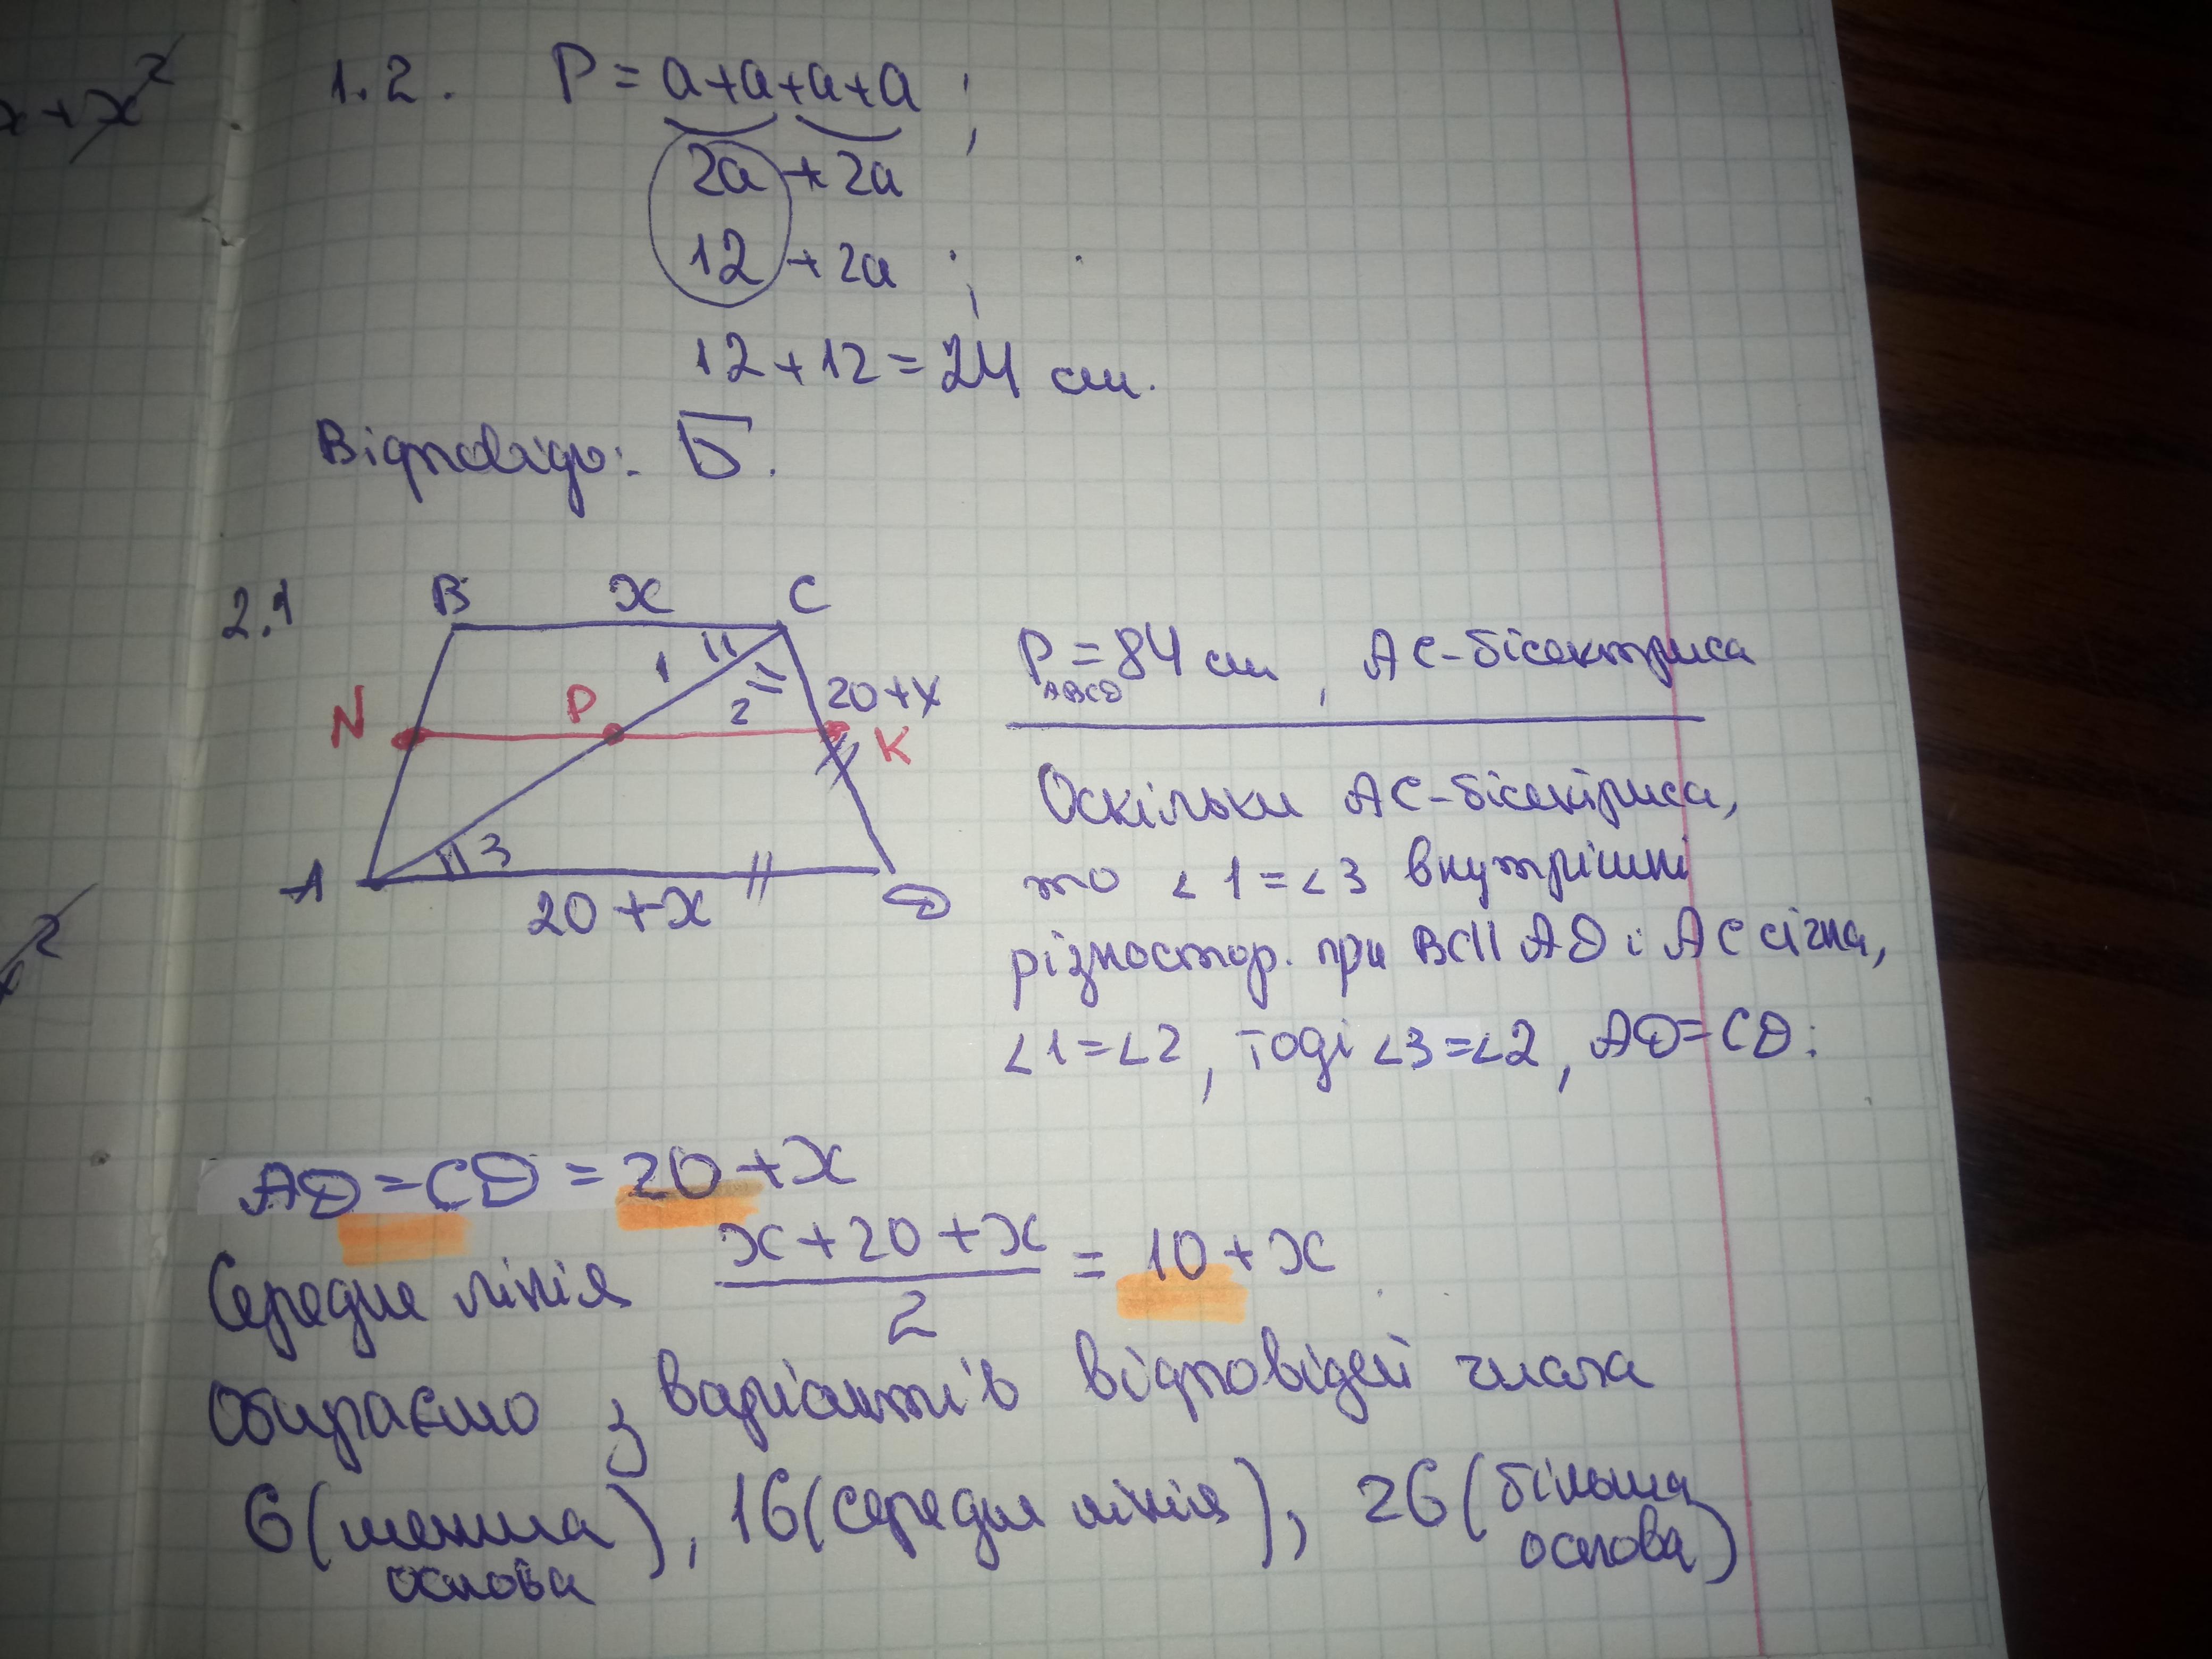 x+x²
1.2. P = a+a+a+a ;
2a + 2a
12 + 2a ;
12+12=24 см.
Відповідь: Б.
2.1
B x C
1 2 20+x
N P K
3
A 20+x D
P ABCD = 84 см, AC-бісектриса
Оскільки AC-бісектриса,
то ∠1=∠3 внутрішні
різностор. при BC||AD і AC січна,
∠1=∠2, тоді ∠3=∠2, AD=CD:
AD=CD = 20+x
Середня лінія (x+20+x)/2 = 10+x
Обираємо з варіантів відповідей числа
6(менша основа), 16(середня лінія), 26(більша основа)
2